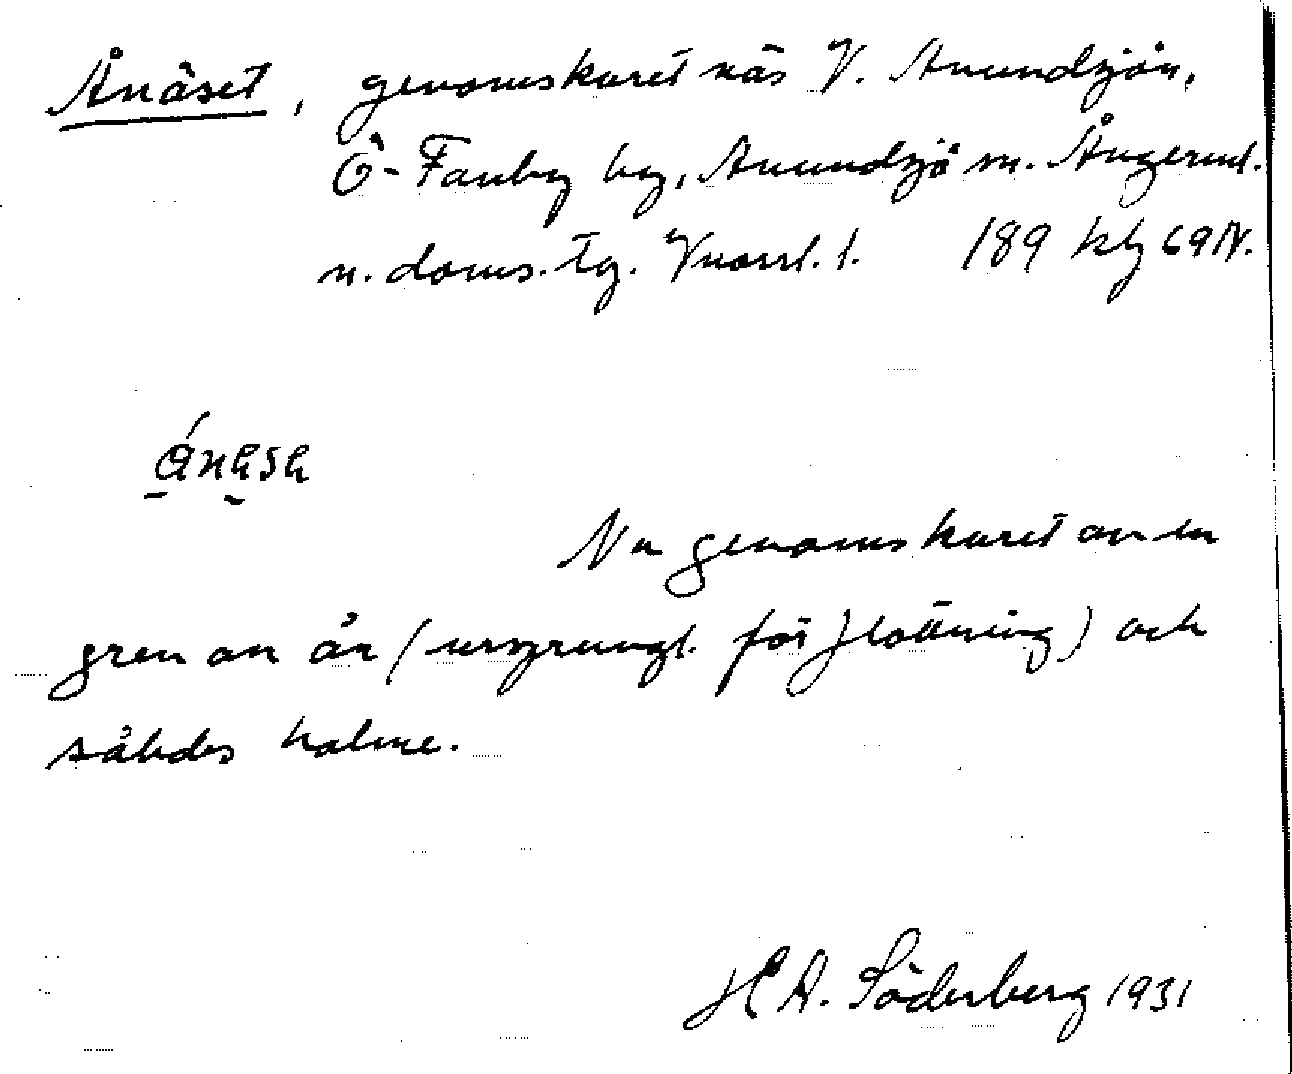 Ånäset, genomskuret näs V. Anundsjön,
Ö-Fanby by, Anundsjö sn. Ångerml.
n. doms. tg. Vnorrl. l. 189 klg 69 N.
Nu genomskuret av en
gren av ån (ursprungl. för flottning) och
således holme.
H A. Söderberg 1931